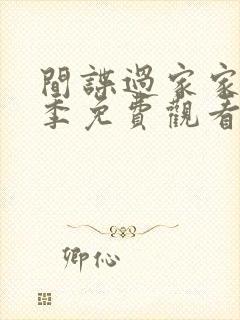 間諜過家家
季免費觀看
卿伈